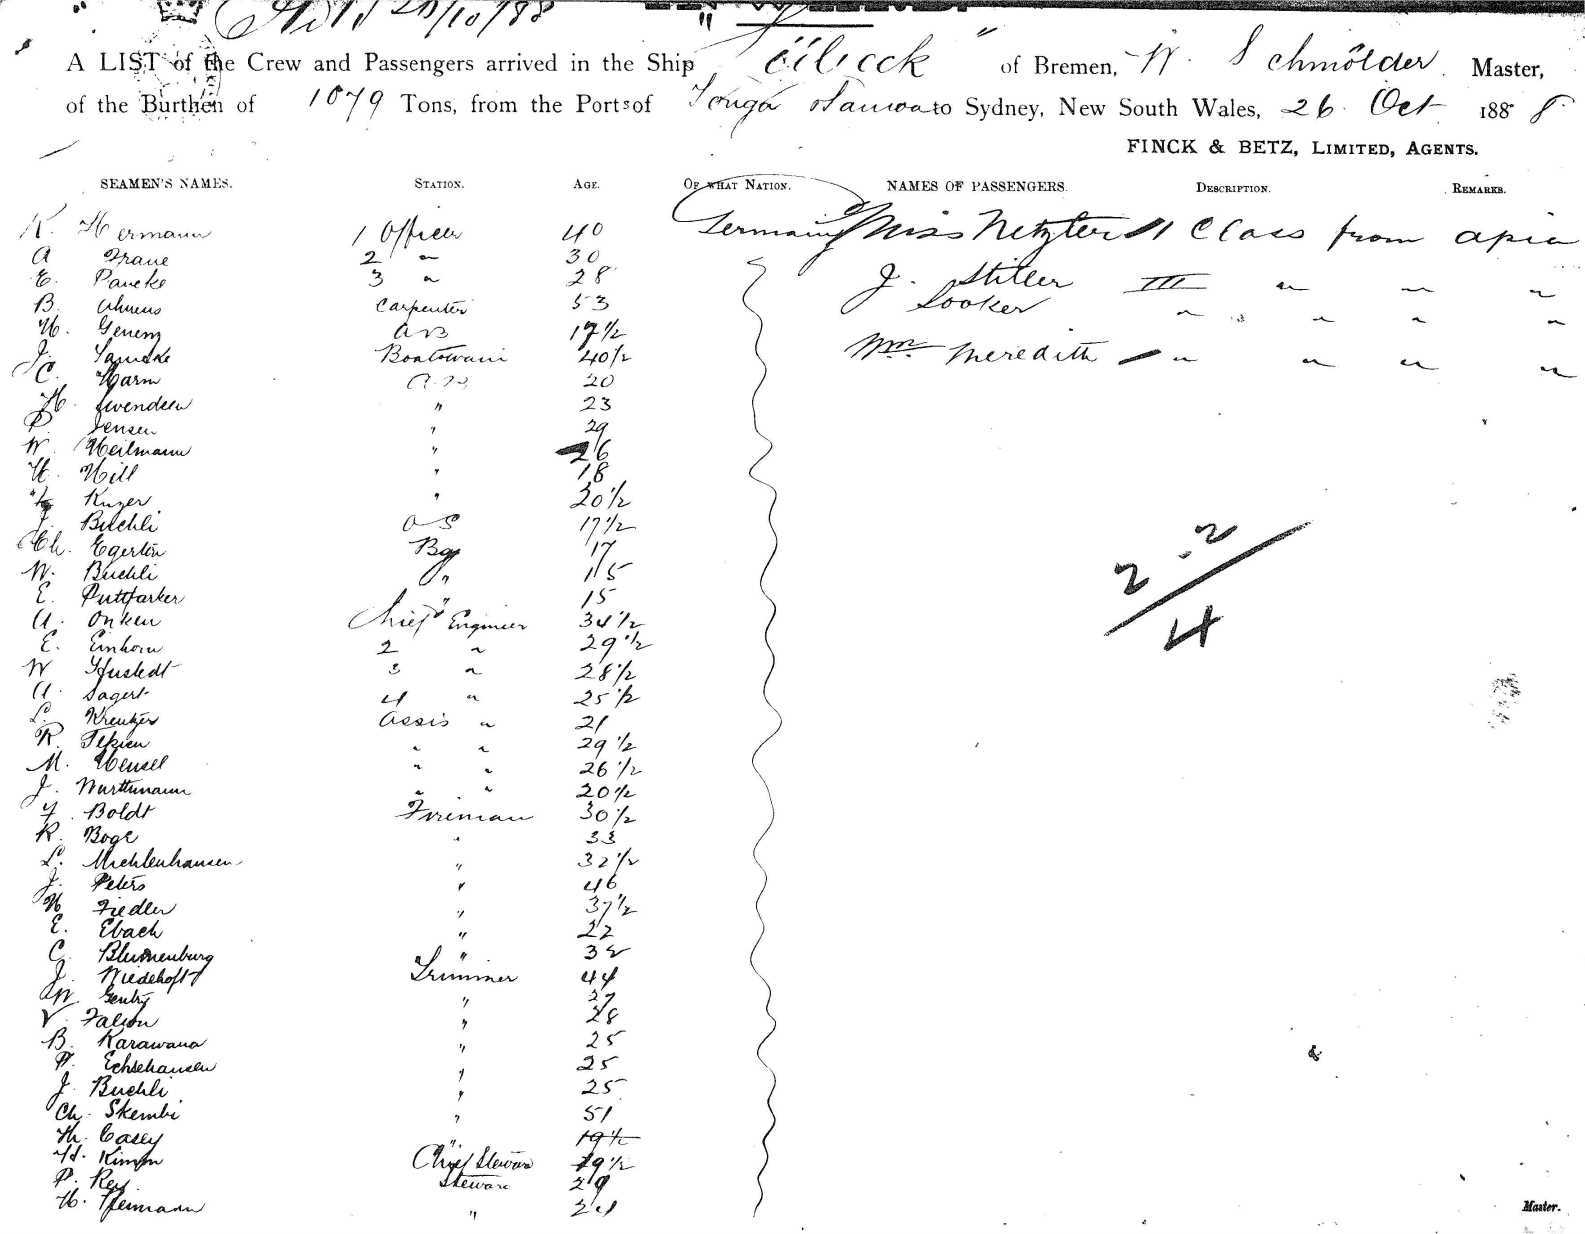 A LIST of the Crew and Passengers arrived in the Ship "Lübeck" of Bremen, W. Schmölder Master,
of the Burthen of 1079 Tons, from the Ports of Tonga Samoa to Sydney, New South Wales, 26 Oct 1888
FINCK & BETZ, LIMITED, AGENTS.
SEAMEN'S NAMES. STATION. AGE. OF WHAT NATION. NAMES OF PASSENGERS. DESCRIPTION. REMARKS.
K. Hermann 1 Officer 40 Germany Miss Netzler II Class from Apia
A 2 " 30
E. Pancke 3 " 28 J. Stiller III " " "
B. Ahrens Carpenter 53 Sooker " " " "
H. AB 17 1/2
J. Boatswain 40 1/2 Mr. Meredith " " " "
C. Harm A.B. 20
H. Swendsen " 23
P. Jensen " 29
W. Heilmann " 26
H. Hill " 18
Kruzer " 20 1/2
J. Buchli OS 17 1/2
Ch. Egerton Boy 17
W. Buchli " 15
E. Puttfarker " 15
A. Onken Chief Engineer 34 1/2
E. Einhorn 2 " 29 1/2
W Hustedt 3 " 28 1/2
A. Sagert 4 " 25 1/2
L. Kreutzer Assis " 21
R. " " 29 1/2
M. Hensel " " 26 1/2
J. Wurthmann " " 20 1/2
F. Boldt Fireman 30 1/2
R. Boge " 33
L. Michlenhausen " 32 1/2
J. Peters " 46
H Fiedler " 37 1/2
E. Ebach " 22
C. Blumenburg " 32
J. Niedehoft Trimmer 44
W. Gentry " 27
V. Falson " 28
B. Karawana " 25
P. Echsehausen " 25
J. Buchli " 25
Ch. Skembi " 51
Th. Casey " 19 1/2
H. Kimm Chief Steward 29 1/2
P. Rey Steward 29
H. Heimann " 24
2 . 2
4
Master.